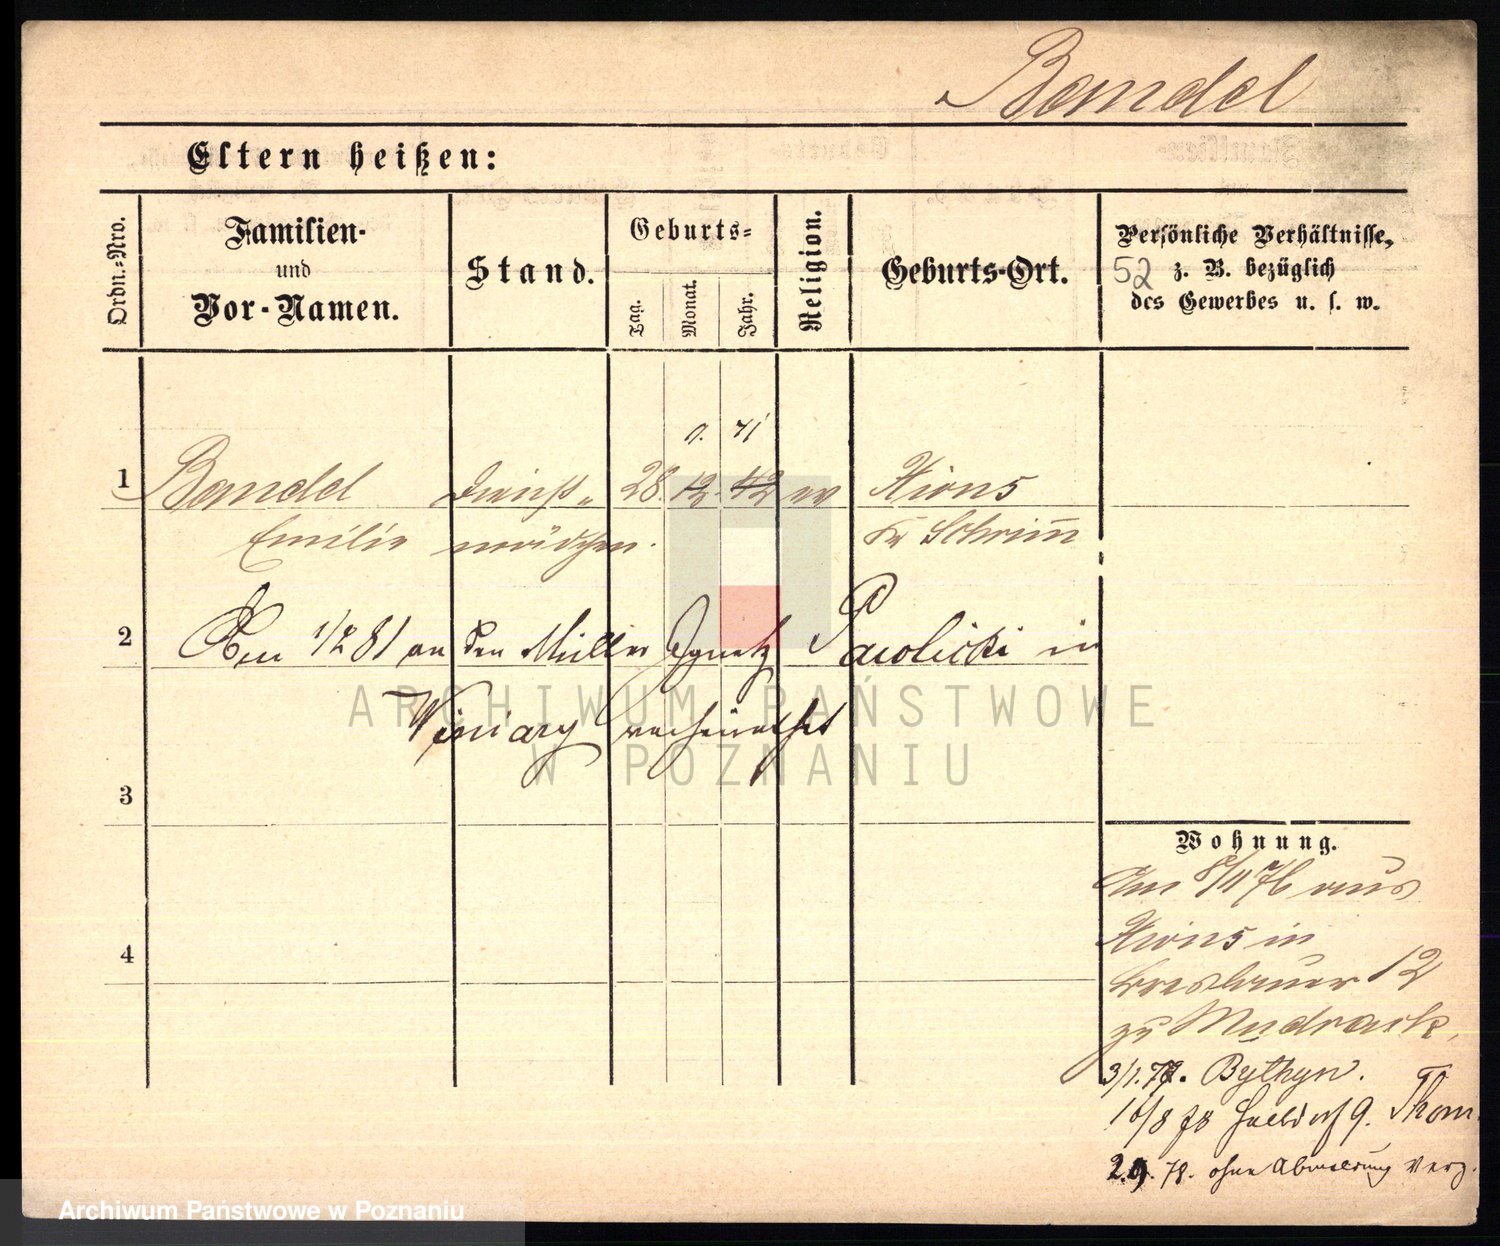 Bandel
Eltern heißen:
Ordn.-Nro.
Familien-
und
Vor-Namen.
Stand.
Geburts-
Tag.
Monat.
Jahr.
Religion.
Geburts-Ort.
Persönliche Verhältnisse,
52 z. B. bezüglich
des Gewerbes u. s. w.
9. 41
1 Bandel Dienst- 28. 12. 42 ev Xions
Emilie mädchen. Kr Schrim̄
2 1/2 81 an den Müller Ignatz Pawlicki in
Winiary verheirathet
3
Wohnung.
Am 8/11 76 aus
Xions in
Breslauer 12
4
zu Mudrack,
3/1. 77. Bythyn.
16/8 78 Halbdorf 9. Thom
2.9. 78. ohne Abmeldung verz.
ARCHIWUM PAŃSTWOWE
W POZNANIU
Archiwum Państwowe w Poznaniu